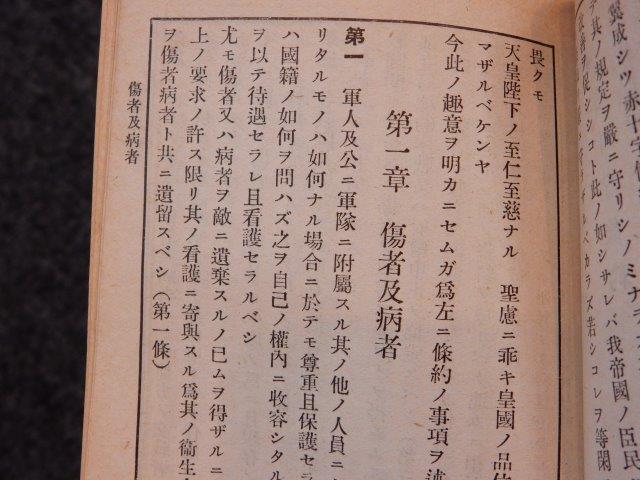 翼成シツ赤十字條
テ其ノ規定ヲ嚴ニ守リシノミナラ
シシコト此ノ如シサレバ我帝國ノ臣民
ベカラズ若シコレヲ等閑
畏クモ
天皇陛下ノ至仁至慈ナル　聖慮ニ乖キ皇國ノ品
マザルベケンヤ
今此ノ趣意ヲ明カニセムガ爲左ニ條約ノ事項ヲ
第一章　傷者及病者
第一　軍人及公ニ軍隊ニ附屬スル其ノ他ノ人員ニ
リタルモノハ如何ナル場合ニ於テモ尊重且保護セラ
ハ國籍ノ如何ヲ問ハズ之ヲ自己ノ權內ニ收容シタル
ヲ以テ待遇セラレ且看護セラルベシ
尤モ傷者又ハ病者ヲ敵ニ遺棄スルノ已ムヲ得ザルニ
上ノ要求ノ許ス限リ其ノ看護ニ寄與スル爲其ノ衞生
ヲ傷者病者ト共ニ遺留スベシ（第一條）
傷者及病者